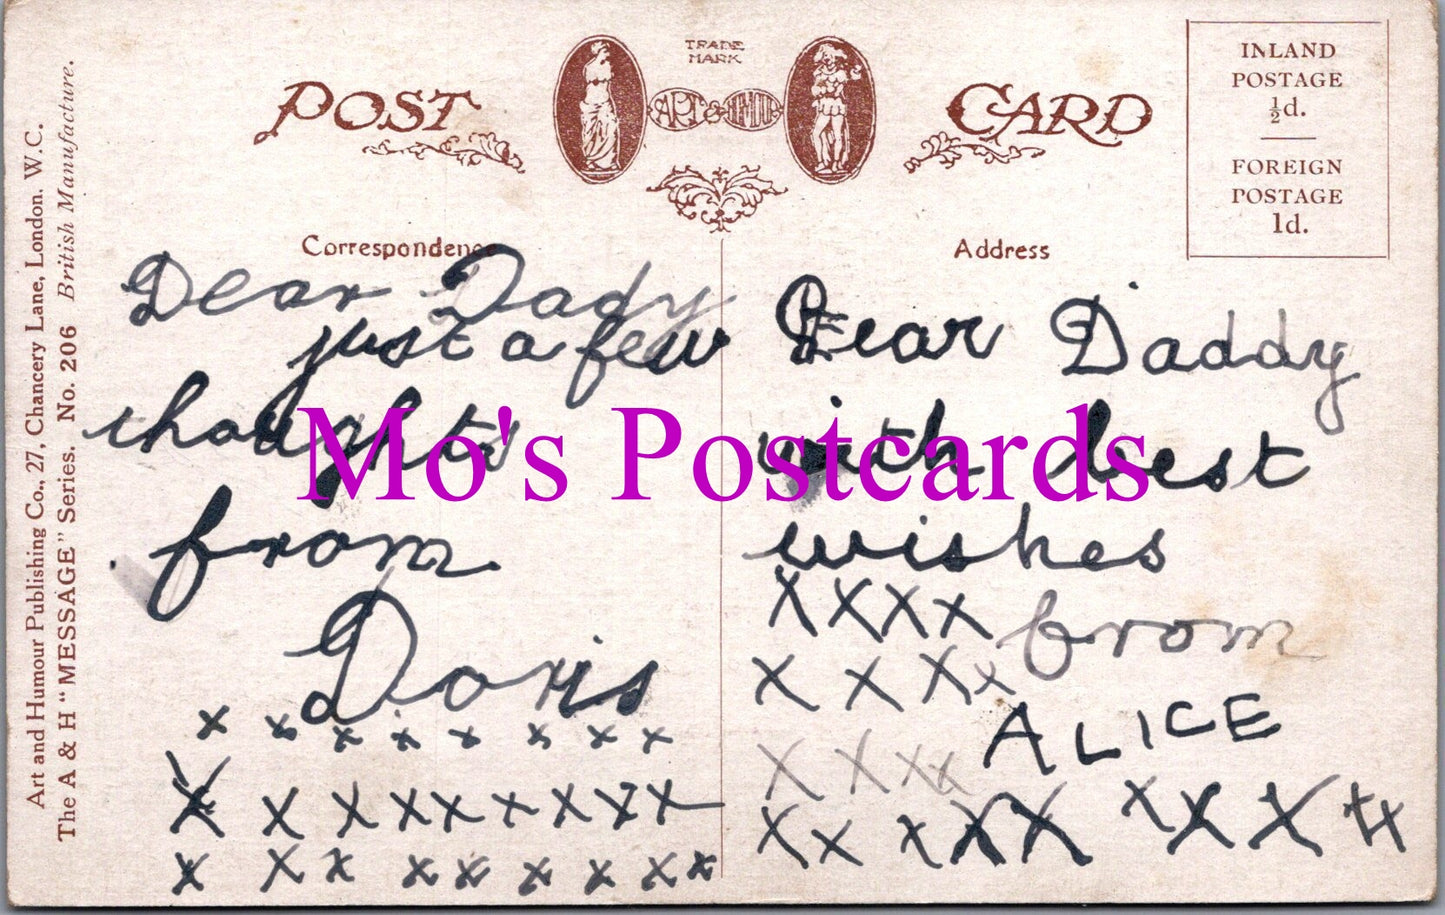 Art and Humour Publishing Co., 27, Chancery Lane, London. W.C.
The A & H "MESSAGE" Series. No. 206 British Manufacture.
POST CARD
TRADE
MARK
ART & HUMOUR
INLAND
POSTAGE
½d.
FOREIGN
POSTAGE
1d.
Correspondence
Dear Dady
just a few
thoughts
from
Doris
x x x x x x x x
X X X X X X X X X
x X x x x x x x x
Address
Dear Daddy
with best
wishes
X X X X from
X X X x
ALICE
X X x x
X x x X X x X X x x
Mo's Postcards